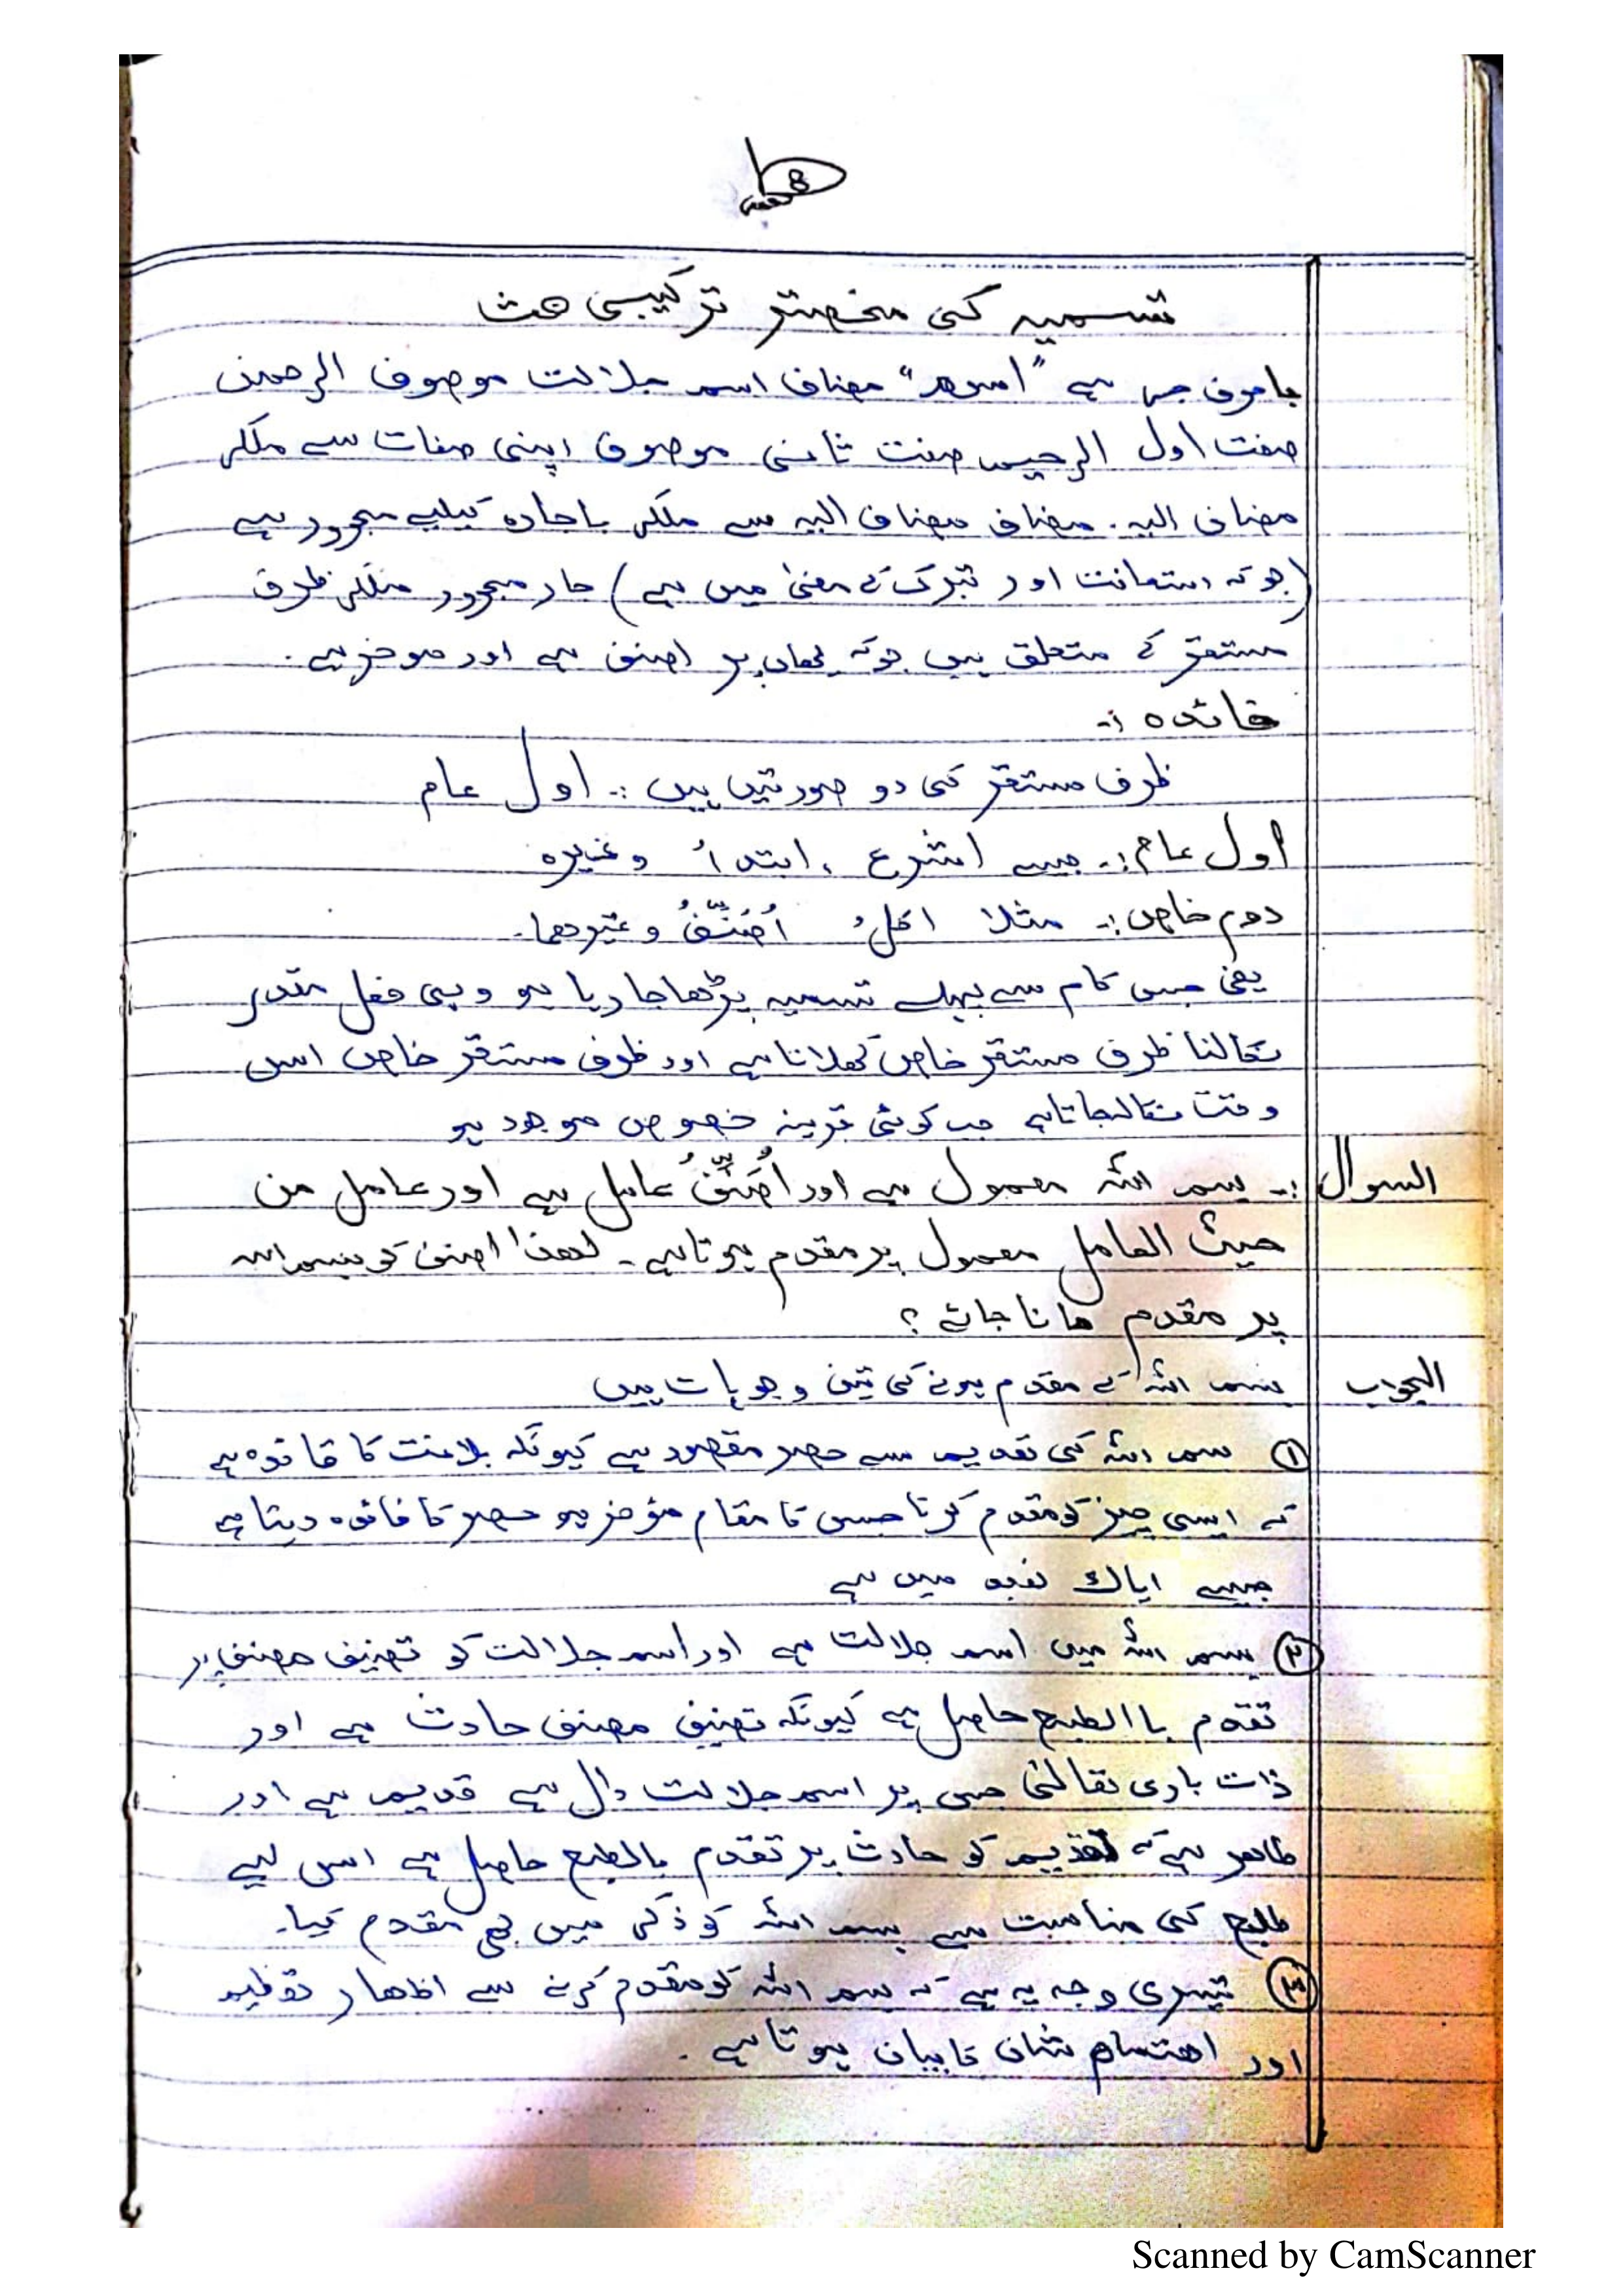 8
تسمیہ کی مختصر ترکیبی بحث
با حرف جر ہے "اسم" مضاف اسم جلالت موصوف الرحمن
صفت اول الرحیم صفت ثانی موصوف اپنی صفات سے ملکر
مضاف الیہ۔ مضاف مضاف الیہ سے ملکر با جارہ کیلیے مجرور ہے
(جو کہ استعانت اور تبرک کے معنیٰ میں ہے) جار مجرور ملکر ظرف
مستقر کے متعلق ہیں جو کہ یہاں پر اصنف ہے اور موخر ہے۔
فائدہ :-
ظرف مستقر کی دو صورتیں ہیں :- اول عام
اول عام :- جیسے اشرع ، ابتدأ وغیرہ
دوم خاص :- مثلا اُصَنِّفُ وغیرہما۔
یعنی جس کام سے پہلے تسمیہ پڑھا جا رہا ہو وہی فعل مقدر
نکالنا ظرف مستقر خاص کہلاتا ہے اور ظرف مستقر خاص اس
وقت نکالا جاتا ہے جب کوئی قرینہ خصوص موجود ہو
السوال :- بسم اللہ معمول ہے اور اُصَنِّفُ عامل ہے اور عامل من
حیث العامل معمول پر مقدم ہوتا ہے۔ لھذا اصنف کو بسم اللہ
پر مقدم مانا جائے ؟
الجواب بسم اللہ کے مقدم ہونے کی تین وجوہات ہیں
① بسم اللہ کی تقدیم سے حصر مقصود ہے کیونکہ بلاغت کا قاعدہ ہے
کہ ایسی چیز کو مقدم کرنا جس کا مقام مؤخر ہو حصر کا فائدہ دیتا ہے
جیسے ایاک نعبد میں ہے
② بسم اللہ میں اسم جلالت ہے اور اسم جلالت کو تصنیف مصنف پر
تقدم باالطبع حاصل ہے کیونکہ تصنیف مصنف حادث ہے اور
ذات باری تعالیٰ جس پر اسم جلالت دال ہے قدیم ہے اور
ظاھر ہے کہ قدیم کو حادث پر تقدم بالطبع حاصل ہے اس لیے
طبع کی مناسبت سے بسم اللہ کو ذکر میں بھی مقدم کیا۔
③ تیسری وجہ یہ ہے کہ بسم اللہ کو مقدم کرنے سے اظھار تعظیم
اور اھتمام شان کا بیان ہوتا ہے۔
Scanned by CamScanner